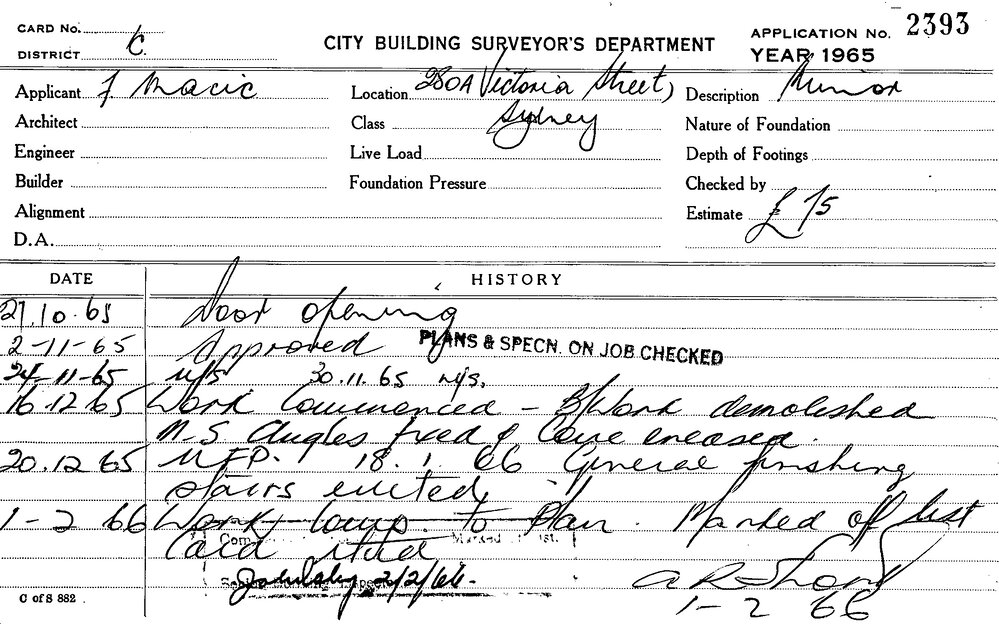 CARD No.
DISTRICT C.
CITY BUILDING SURVEYOR'S DEPARTMENT
APPLICATION No. 2393
YEAR 1965
Applicant F Macic
Location 280A Victoria Street,
Description Minor
Architect
Class Sydney
Nature of Foundation
Engineer
Live Load
Depth of Footings
Builder
Foundation Pressure
Checked by
Alignment
Estimate £75
D.A.
DATE HISTORY
27.10.65 Door opening
2-11-65 Approved PLANS & SPECN. ON JOB CHECKED
24-11-65 N/S 30.11.65 N/S.
16.12.65 Work Commenced - B/Work demolished
M.S Angles fixed & Conc encased.
20.12.65 18.1.66 General finishing
stairs erected
1-2 66 Work Comp. to Plan. Marked off list
Card
2/2/66.
1-2 66
C of S 882